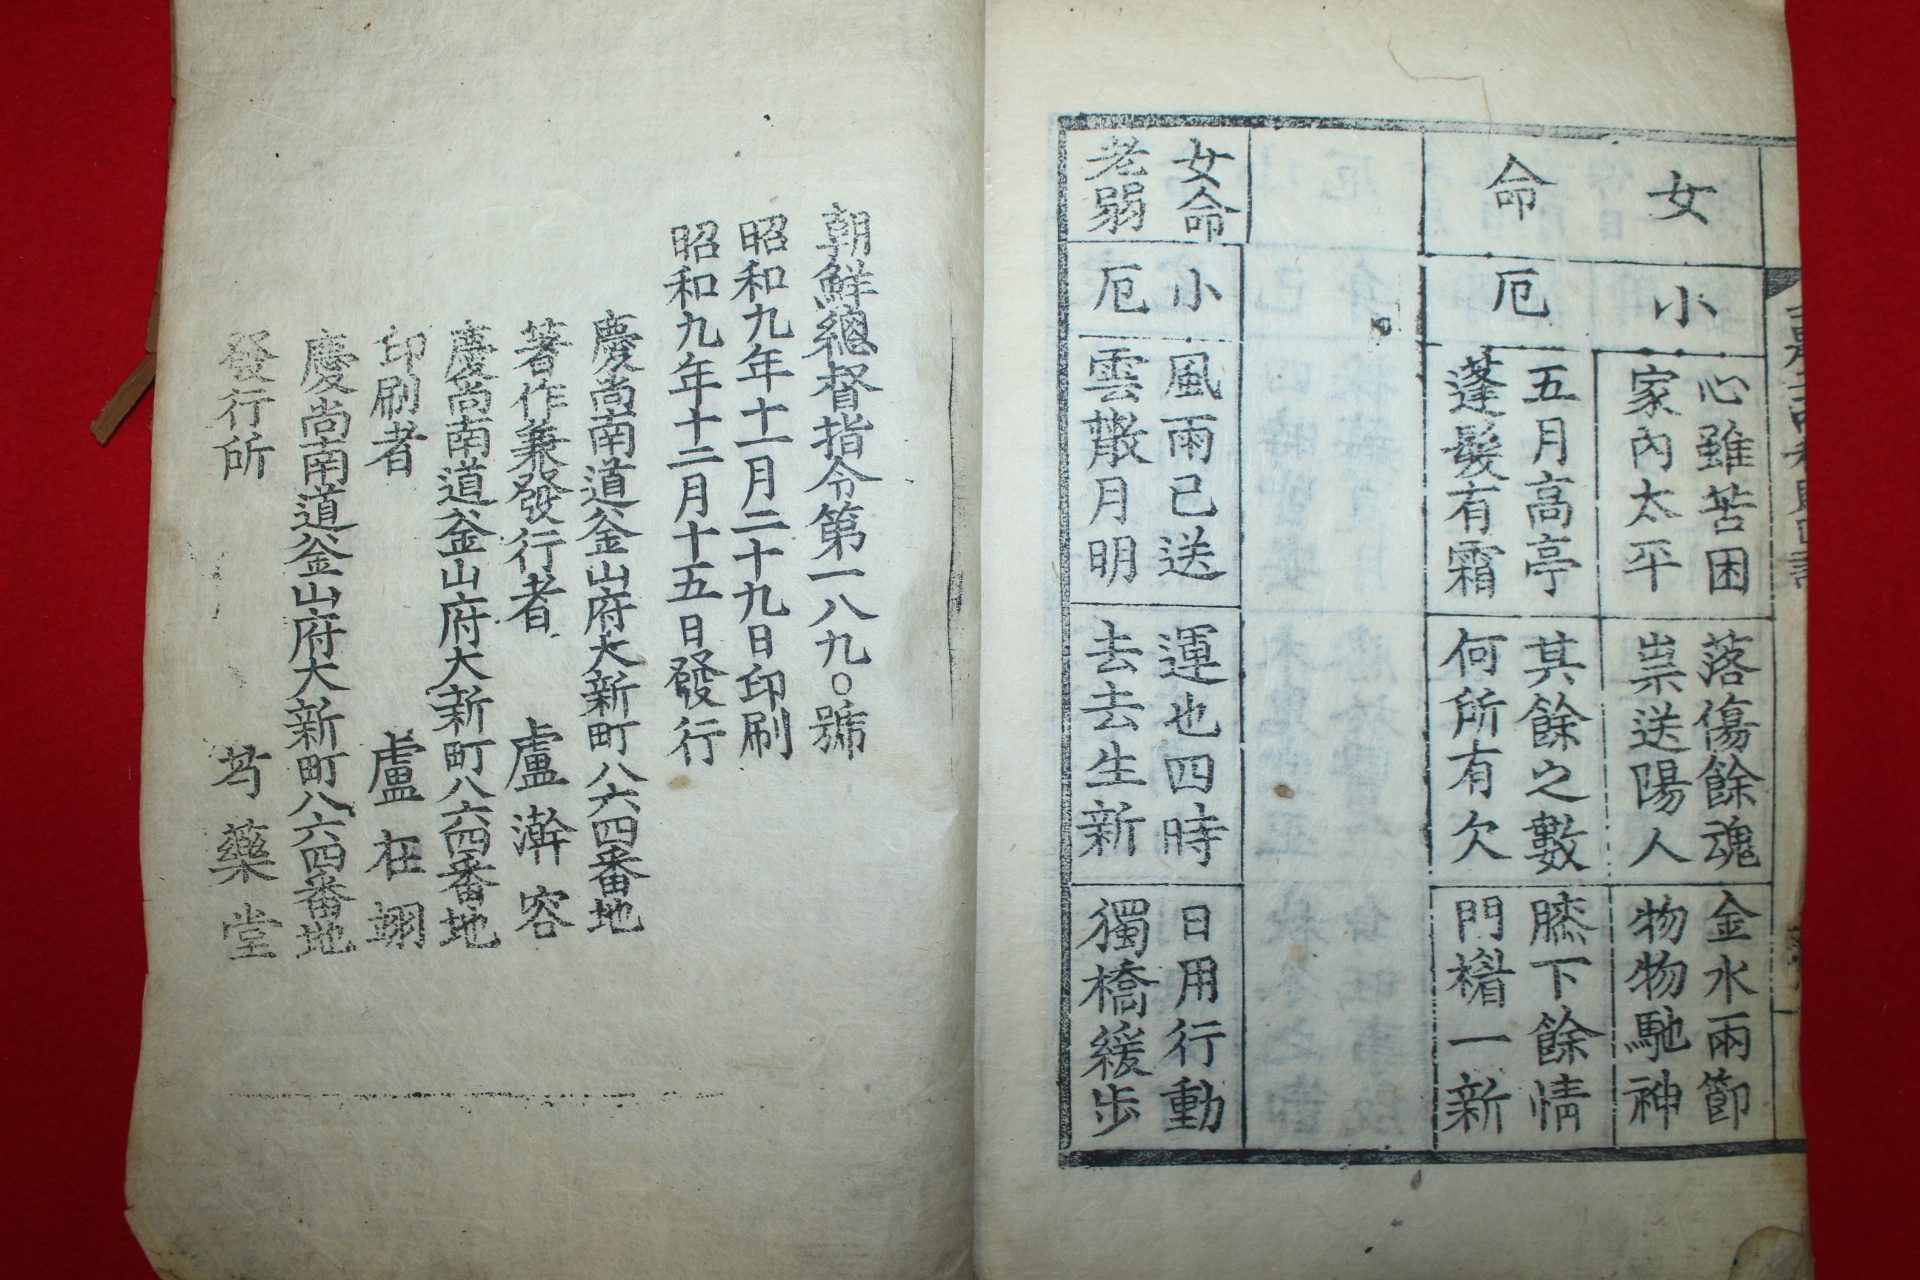 女命
小厄
心雖苦困
家內太平
落傷餘魂
祟送陽人
金水兩節
物物馳神
五月高亭
蓬髮有霜
其餘之數
何所有欠
膝下餘情
門楣一新
女命
老弱
小厄
風雨已送
雲散月明
運也四時
去去生新
日用行動
獨橋緩步
朝鮮總督指令第一八九〇號
昭和九年十一月二十九日印刷
昭和九年十二月十五日發行
慶尚南道釜山府大新町八六四番地
著作兼發行者 盧澣容
慶尚南道釜山府大新町八六四番地
印刷者 盧在翊
慶尚南道釜山府大新町八六四番地
發行所 芍藥堂